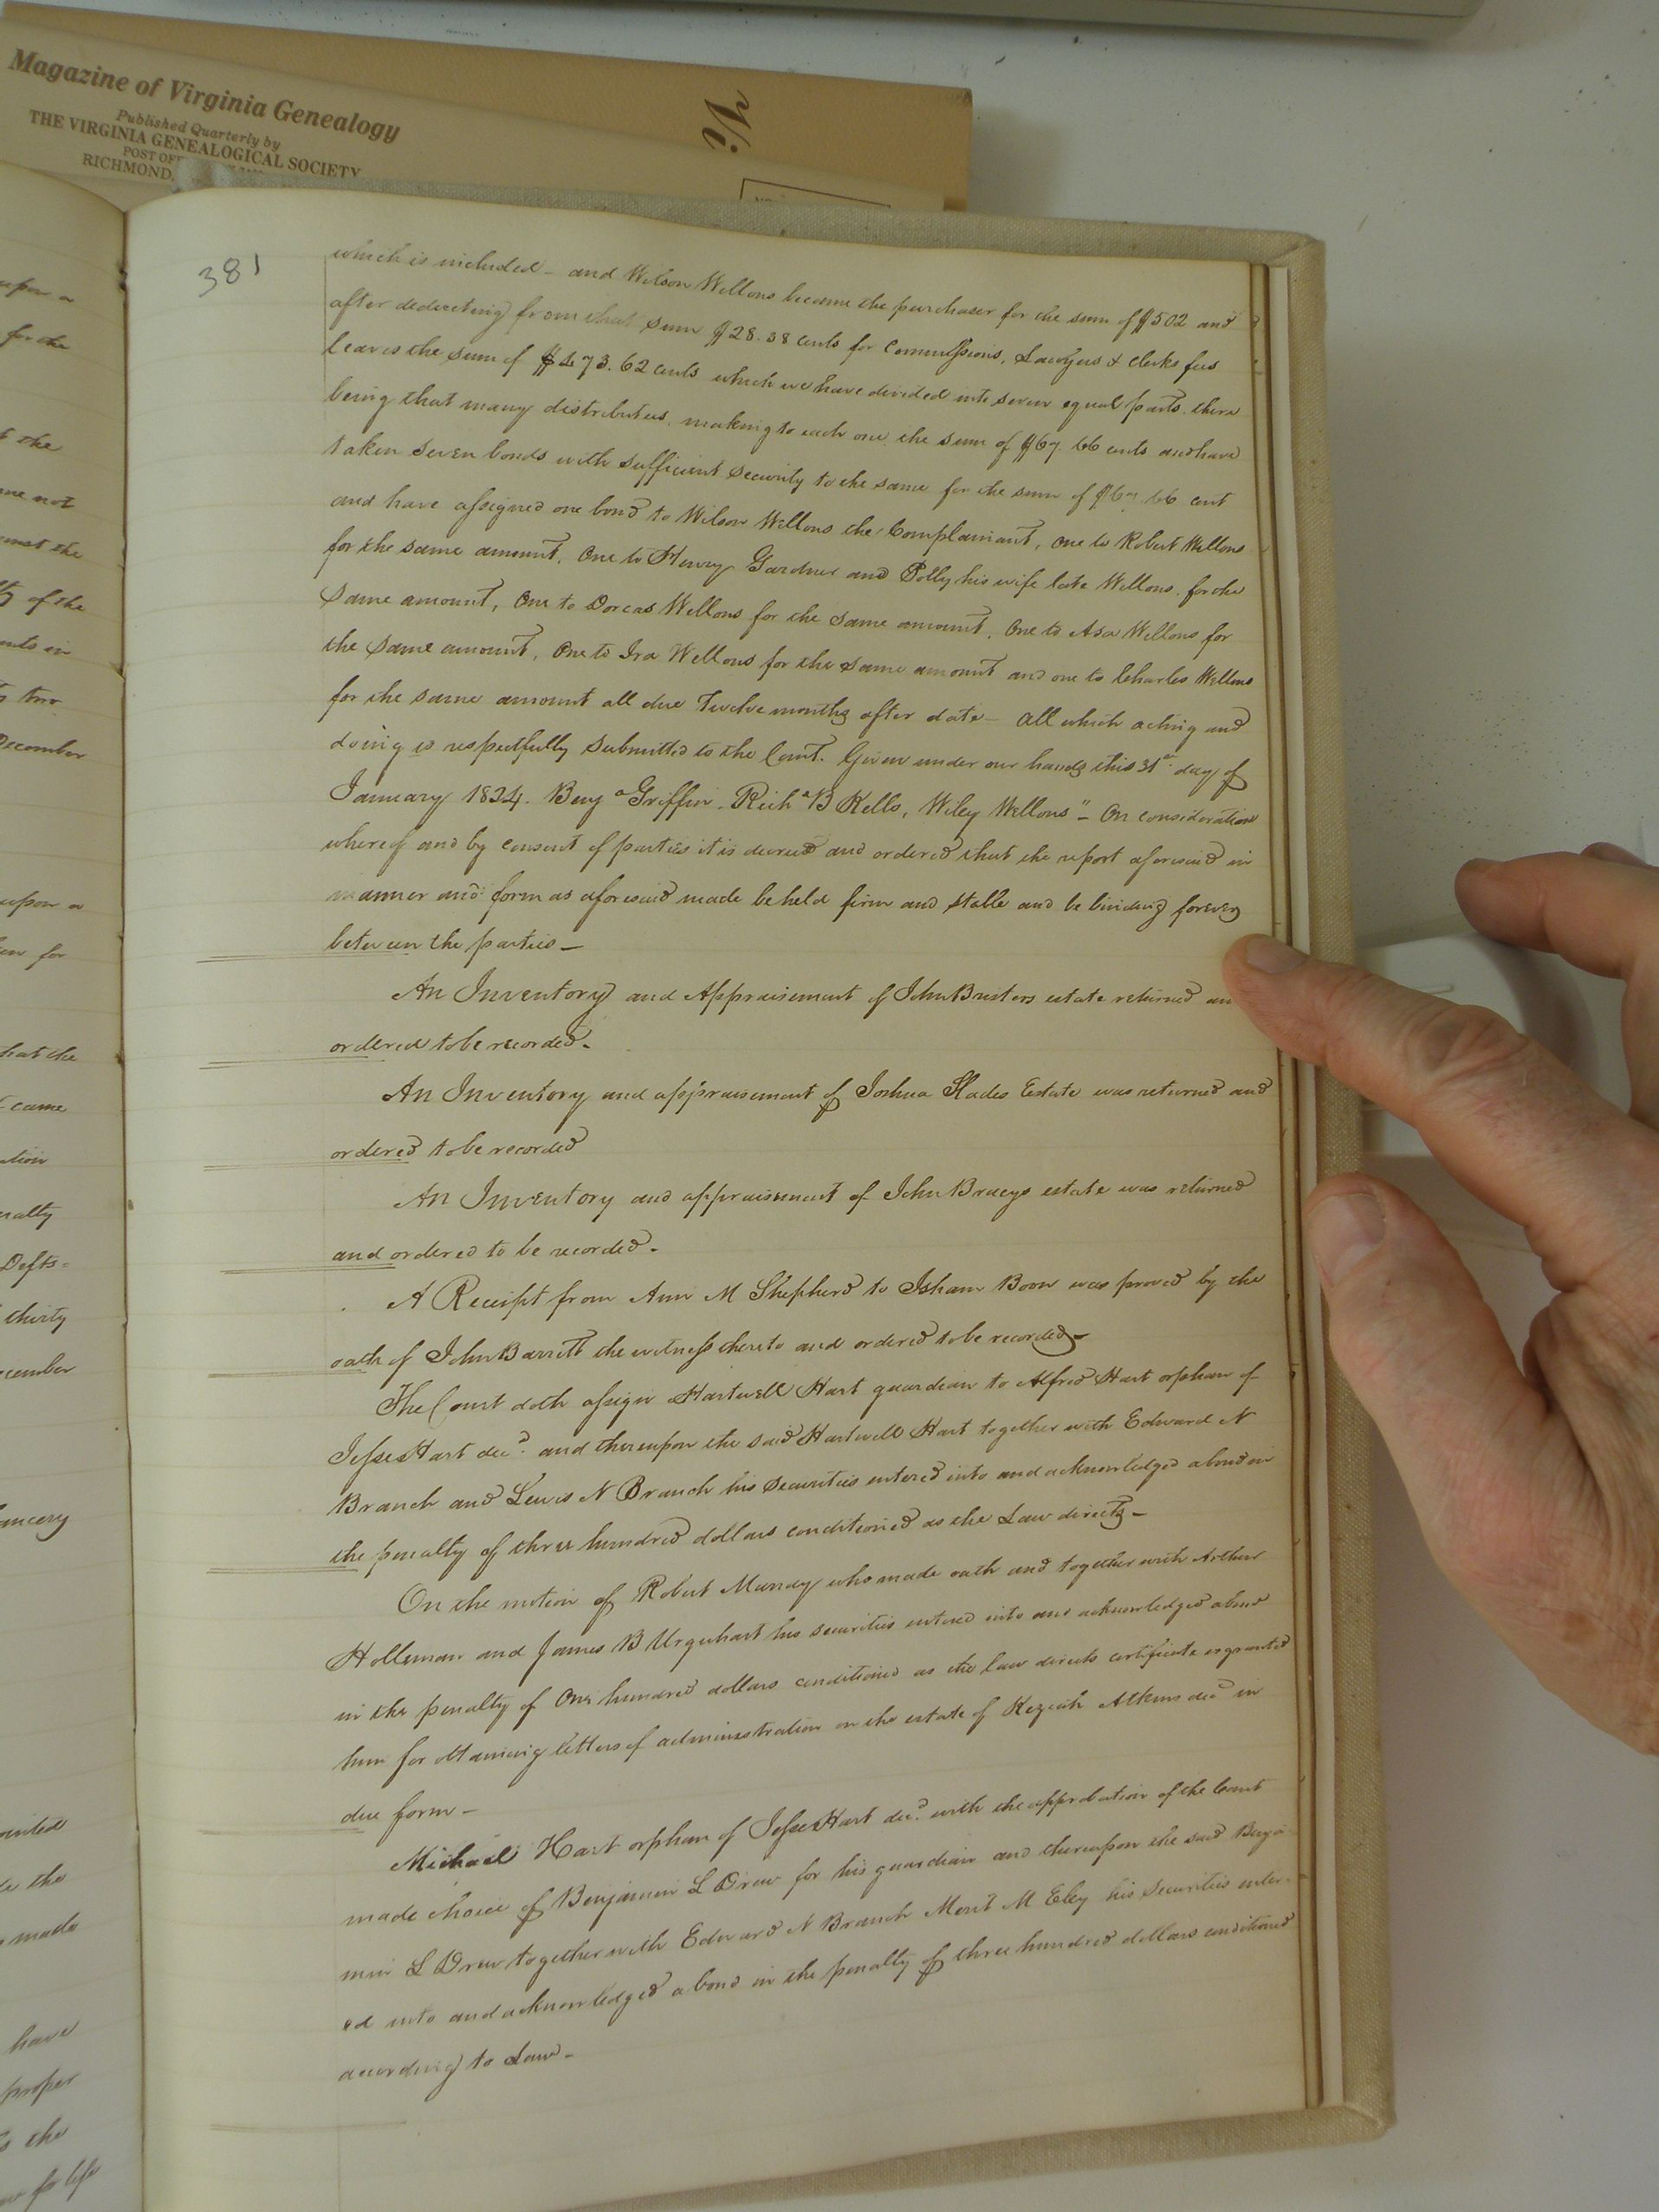 Magazine of Virginia Genealogy
Published Quarterly by
THE VIRGINIA GENEALOGICAL SOCIETY
POST OF
RICHMOND,
Vi
381
which is included - and Wilson Wellons became the purchaser for the sum of $502 and
after deducting from that sum $28.38 cents for Commissions, Lawyers & Clerks fees
leaves the sum of $473.62 cents which we have divided into seven equal parts there
being that many distributees, making to each one the sum of $67.66 cents and have
taken seven bonds with sufficient security to the same for the sum of $67.66 cent
and have assigned one bond to Wilson Wellons the Complainant, one to Robert Wellons
for the same amount, One to Henry Gardner and Polly his wife late Wellons, for the
same amount, One to Dorcas Wellons for the same amount, One to Asa Wellons for
the same amount, One to Ira Wellons for the same amount and one to Charles Wellons
for the same amount all due Twelve months after date - All which acting and
doing is respectfully submitted to the Court. Given under our hands this 31st day of
January 1834. Benj a Griffin. Rich d B Kello, Wiley Wellons" - On consideration
whereof and by consent of parties it is decreed and ordered that the report aforesaid in
manner and form as aforesaid made be held firm and stable and be binding forever
between the parties -
An Inventory and Appraisement of John Bristers estate returned an
ordered to be recorded.
An Inventory and appraisement of Joshua Slades Estate was returned and
ordered to be recorded
An Inventory and appraisement of John Braceys estate was returned
and ordered to be recorded.
A Receipt from Ann M Shepherd to Isham Boon was proved by the
oath of John Barrett the witness thereto and ordered to be recorded -
The Court doth assign Hartwell Hart guardian to Alfred Hart orphan of
Jesse Hart decd. and thereupon the said Hartwell Hart together with Edward N
Branch and Lewis N Branch his securities entered into and acknowledged a bond in
the penalty of three hundred dollars conditioned as the Law directs -
On the motion of Robert Murray who made oath and together with Arthur
Holleman and James B Urquhart his securities entered into and acknowledged a bond
in the penalty of One hundred dollars conditioned as the law directs certificate is granted
him for obtaining letters of administration on the estate of Keziah Atkins decd in
due form -
Michael Hart orphan of Jesse Hart decd. with the approbation of the Court
made choice of Benjamin L Drew for his guardian and thereupon the said Benja
min L Drew together with Edward N Branch Merit M Eley his securities enter-
ed into and acknowledged a bond in the penalty of three hundred dollars conditioned
according to Law -
upon a
for the
the
me not
of the
in
two
December
upon a
for
that the
came
Defts
thirty
made
have
proper
the
for life